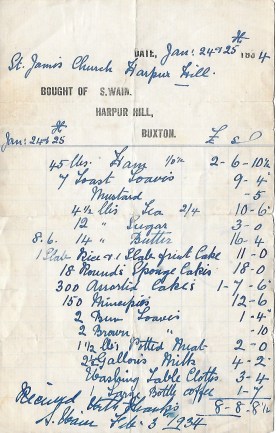 DATE, Jan: 24 & 25 th 1934
St. James Church Harpur Hill.
BOUGHT OF S. WAIN.
HARPUR HILL,
BUXTON.
Jan: 24 & 25 th £ s d
45 lbs. Ham 2-6-10½
7 Toast Loaves 9-4
Mustard -5
4½ lbs Tea 2/4 10-6
12 " Sugar 3-0
14 " Butter 16-4
1 Slab Rice & 1 Slab fruit Cake 11-0
18 Rounds Sponge Cakes 18-0
300 Assorted Cakes 1-7-6
150 Mincepies 12-6
2 Bun Loaves 1-4
2 Brown " -10
1½ lbs Potted Meat 2-0
2½ Gallons Milk 4-2
Washing Table Cloths 3-4
Large Bottle coffee 1-
8-8-8½
Received With Thanks
S. Wain Feb. 3rd 1934